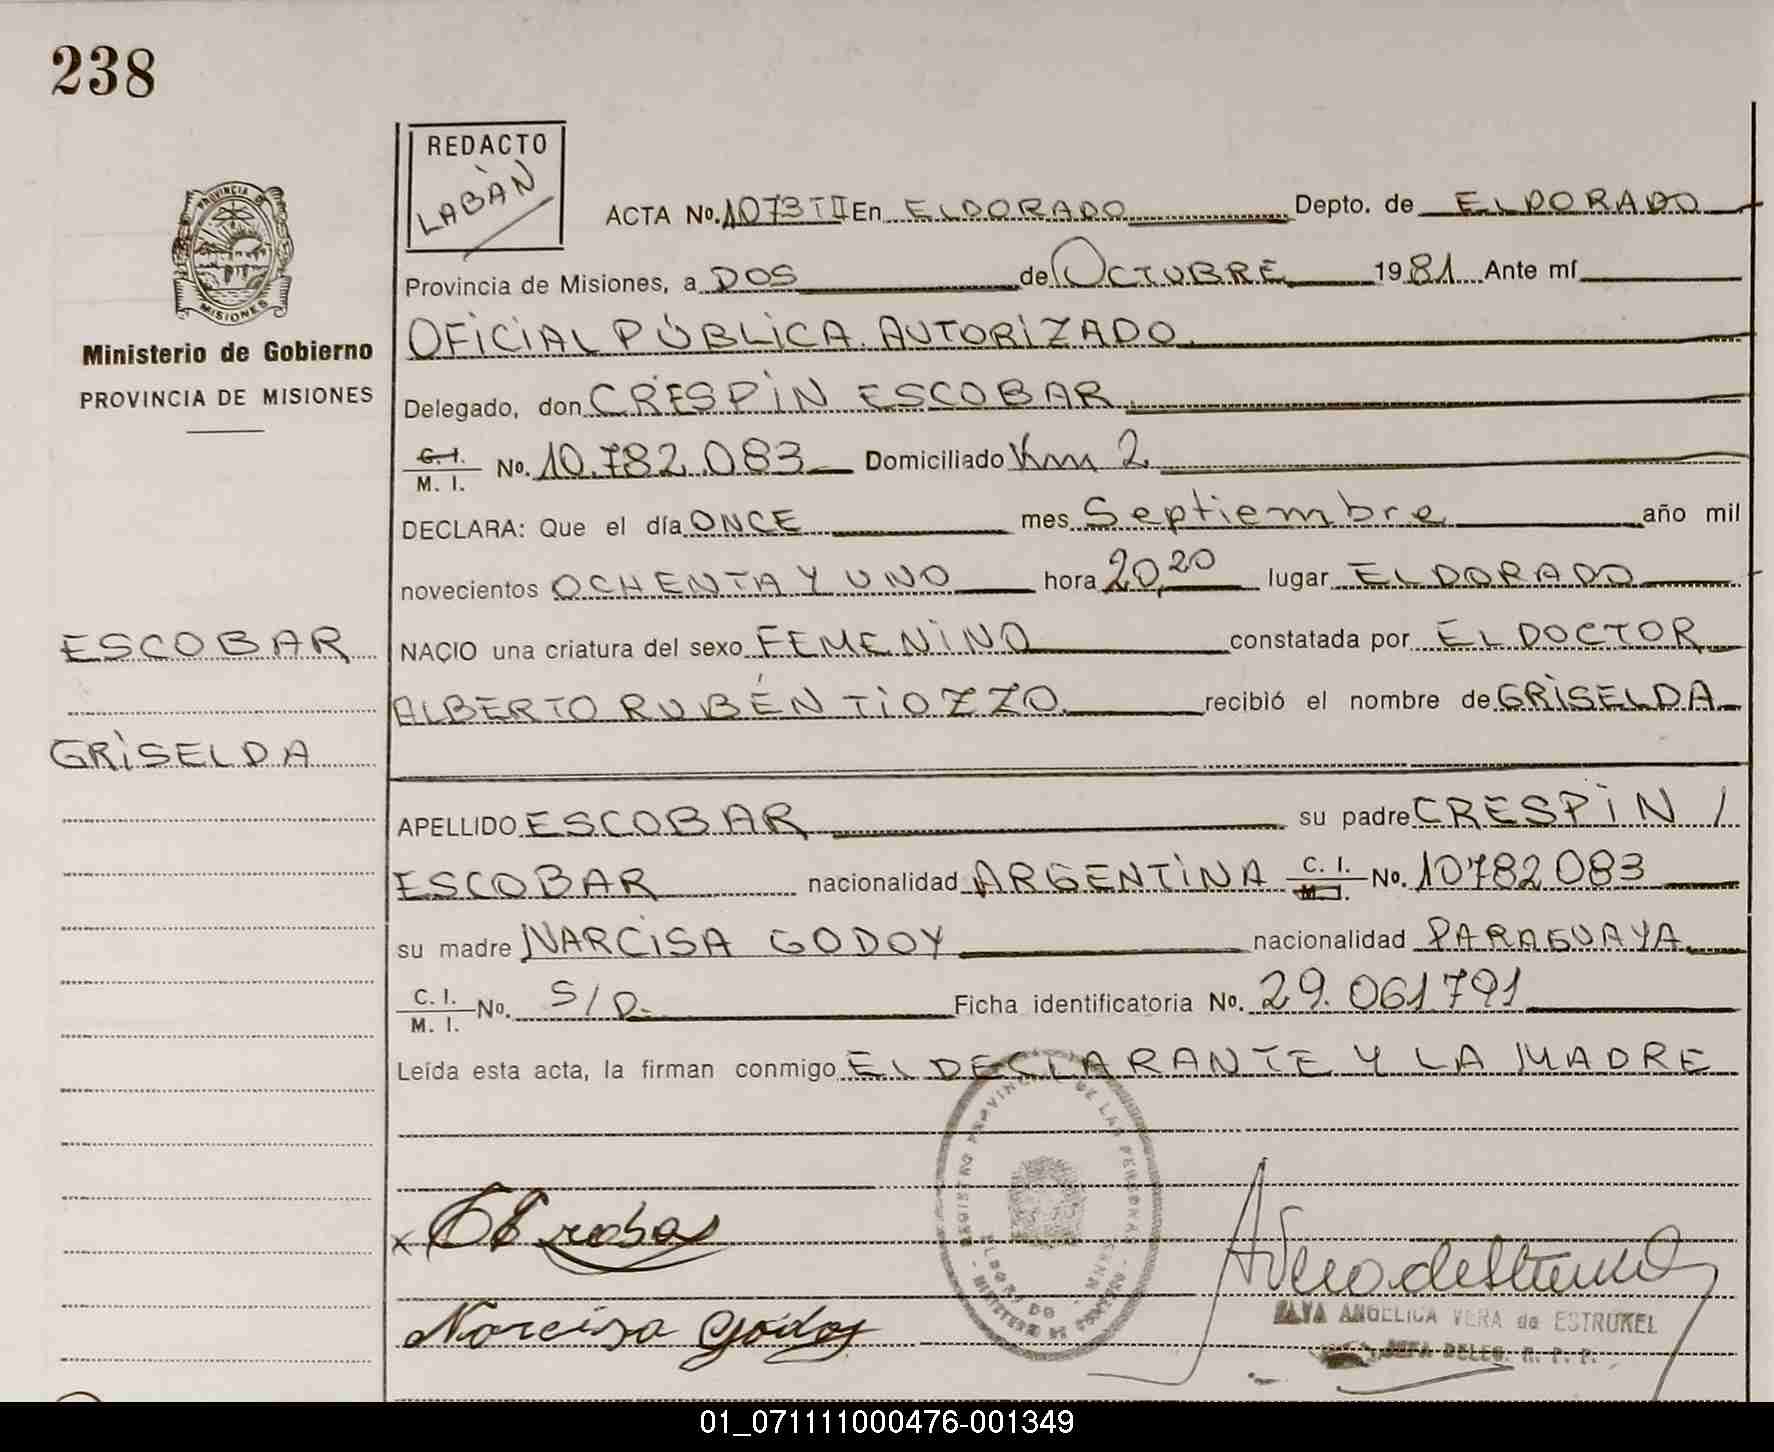 238
REDACTO
LABÀN
PROVINCIA DE
MISIONES
Ministerio de Gobierno
PROVINCIA DE MISIONES
ACTA No. 1073 T II En ELDORADO Depto. de ELDORADO
Provincia de Misiones, a DOS de OCTUBRE 1981 Ante mí
OFICIAL PÚBLICA AUTORIZADO
Delegado, don CRESPIN ESCOBAR
C. I.
M. I. No. 10.782.083 Domiciliado Km 2
DECLARA: Que el día ONCE mes Septiembre año mil
novecientos OCHENTA Y UNO hora 20,20 lugar ELDORADO
ESCOBAR
NACIO una criatura del sexo FEMENINO constatada por EL DOCTOR
ALBERTO RUBÉN TIOZZO recibió el nombre de GRISELDA
GRISELDA
APELLIDO ESCOBAR su padre CRESPIN /
ESCOBAR nacionalidad ARGENTINA C. I. M. I. No. 10782083
su madre NARCISA GODOY nacionalidad PARAGUAYA
C. I.
M. I. No. S/D. Ficha identificatoria No. 29.061791
Leída esta acta, la firman conmigo EL DECLARANTE Y LA MADRE
REGISTRO PROVINCIAL DE LAS PERSONAS
ELDORADO
MINISTERIO DE GOBIERNO
x
Narcisa Godoy
ANGELICA VERA de ESTRUKEL
JEFA DELEG. R. P. P.
01_071111000476-001349